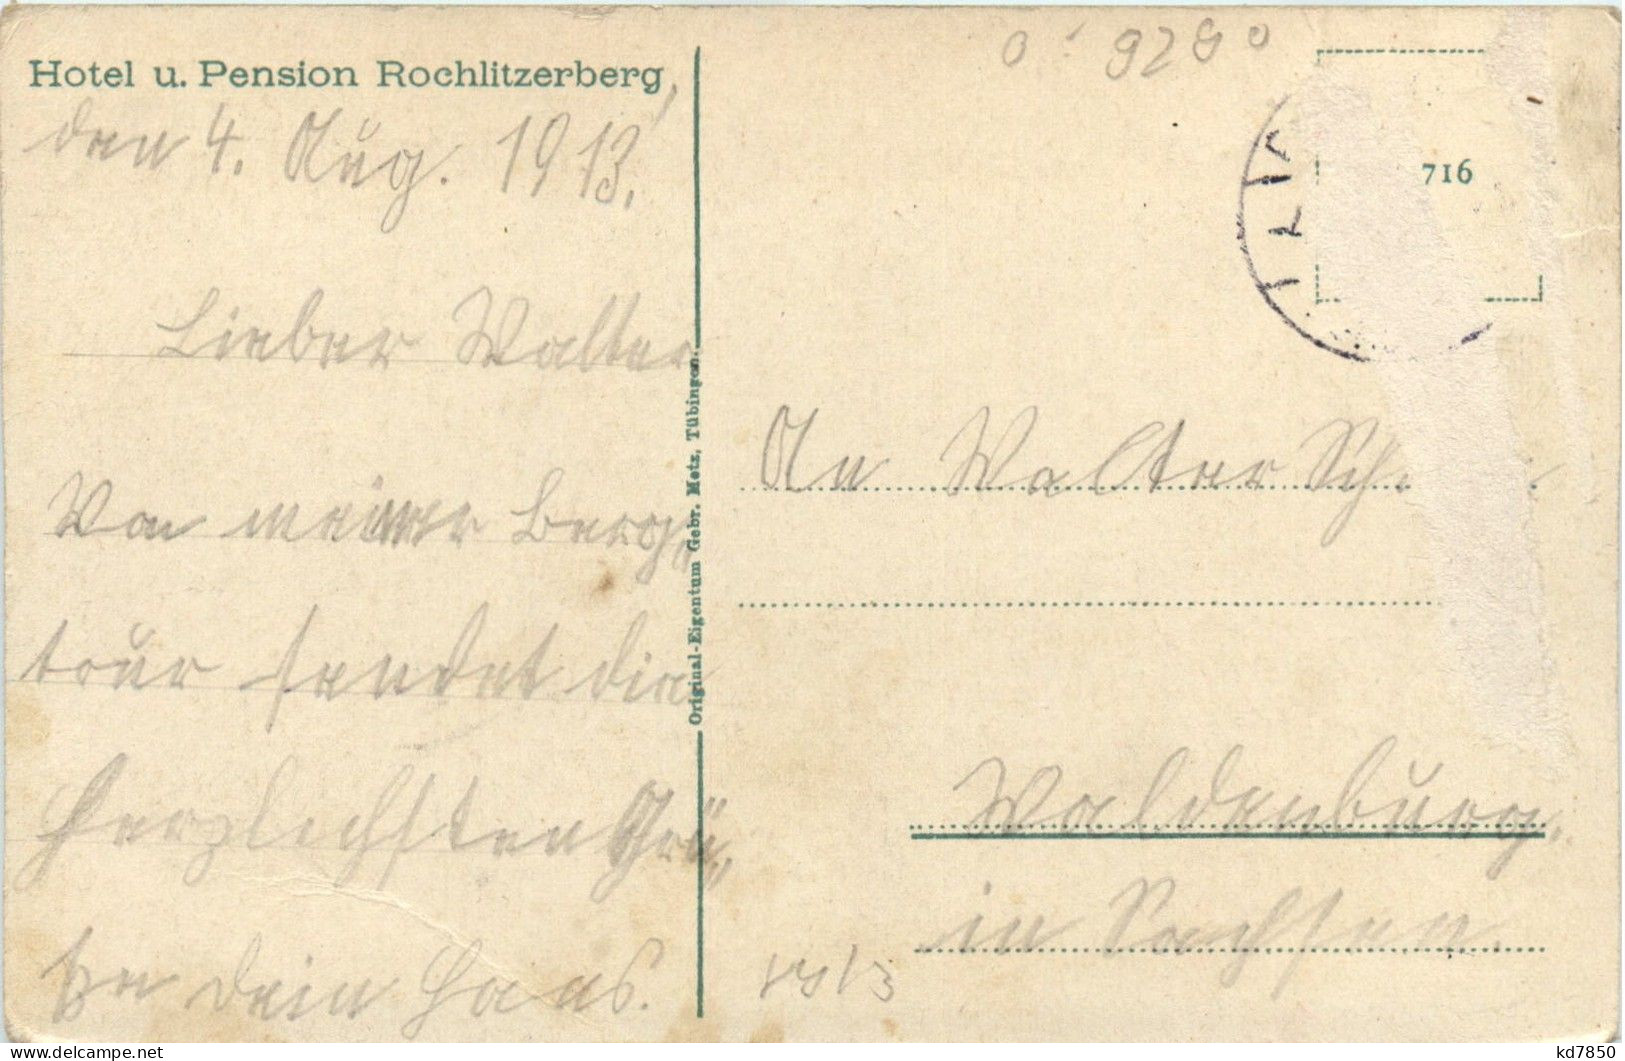 Hotel u. Pension Rochlitzerberg,
den 4. Aug. 1913.
Lieber Walter
Von meiner Berg„
tour sendet die
herzlichsten Grü„
ße Dein Hans.
Original-Eigentum Gebr. Metz, Tübingen.
716
An Walter Sch
Waldenburg.
in Sachsen.
kd7850